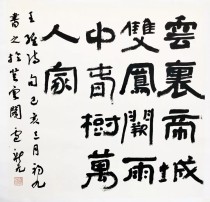 雲裏帝城
雙鳳闕雨
中春樹萬
人家
王維詩句己亥三月初九
書之於雲閣